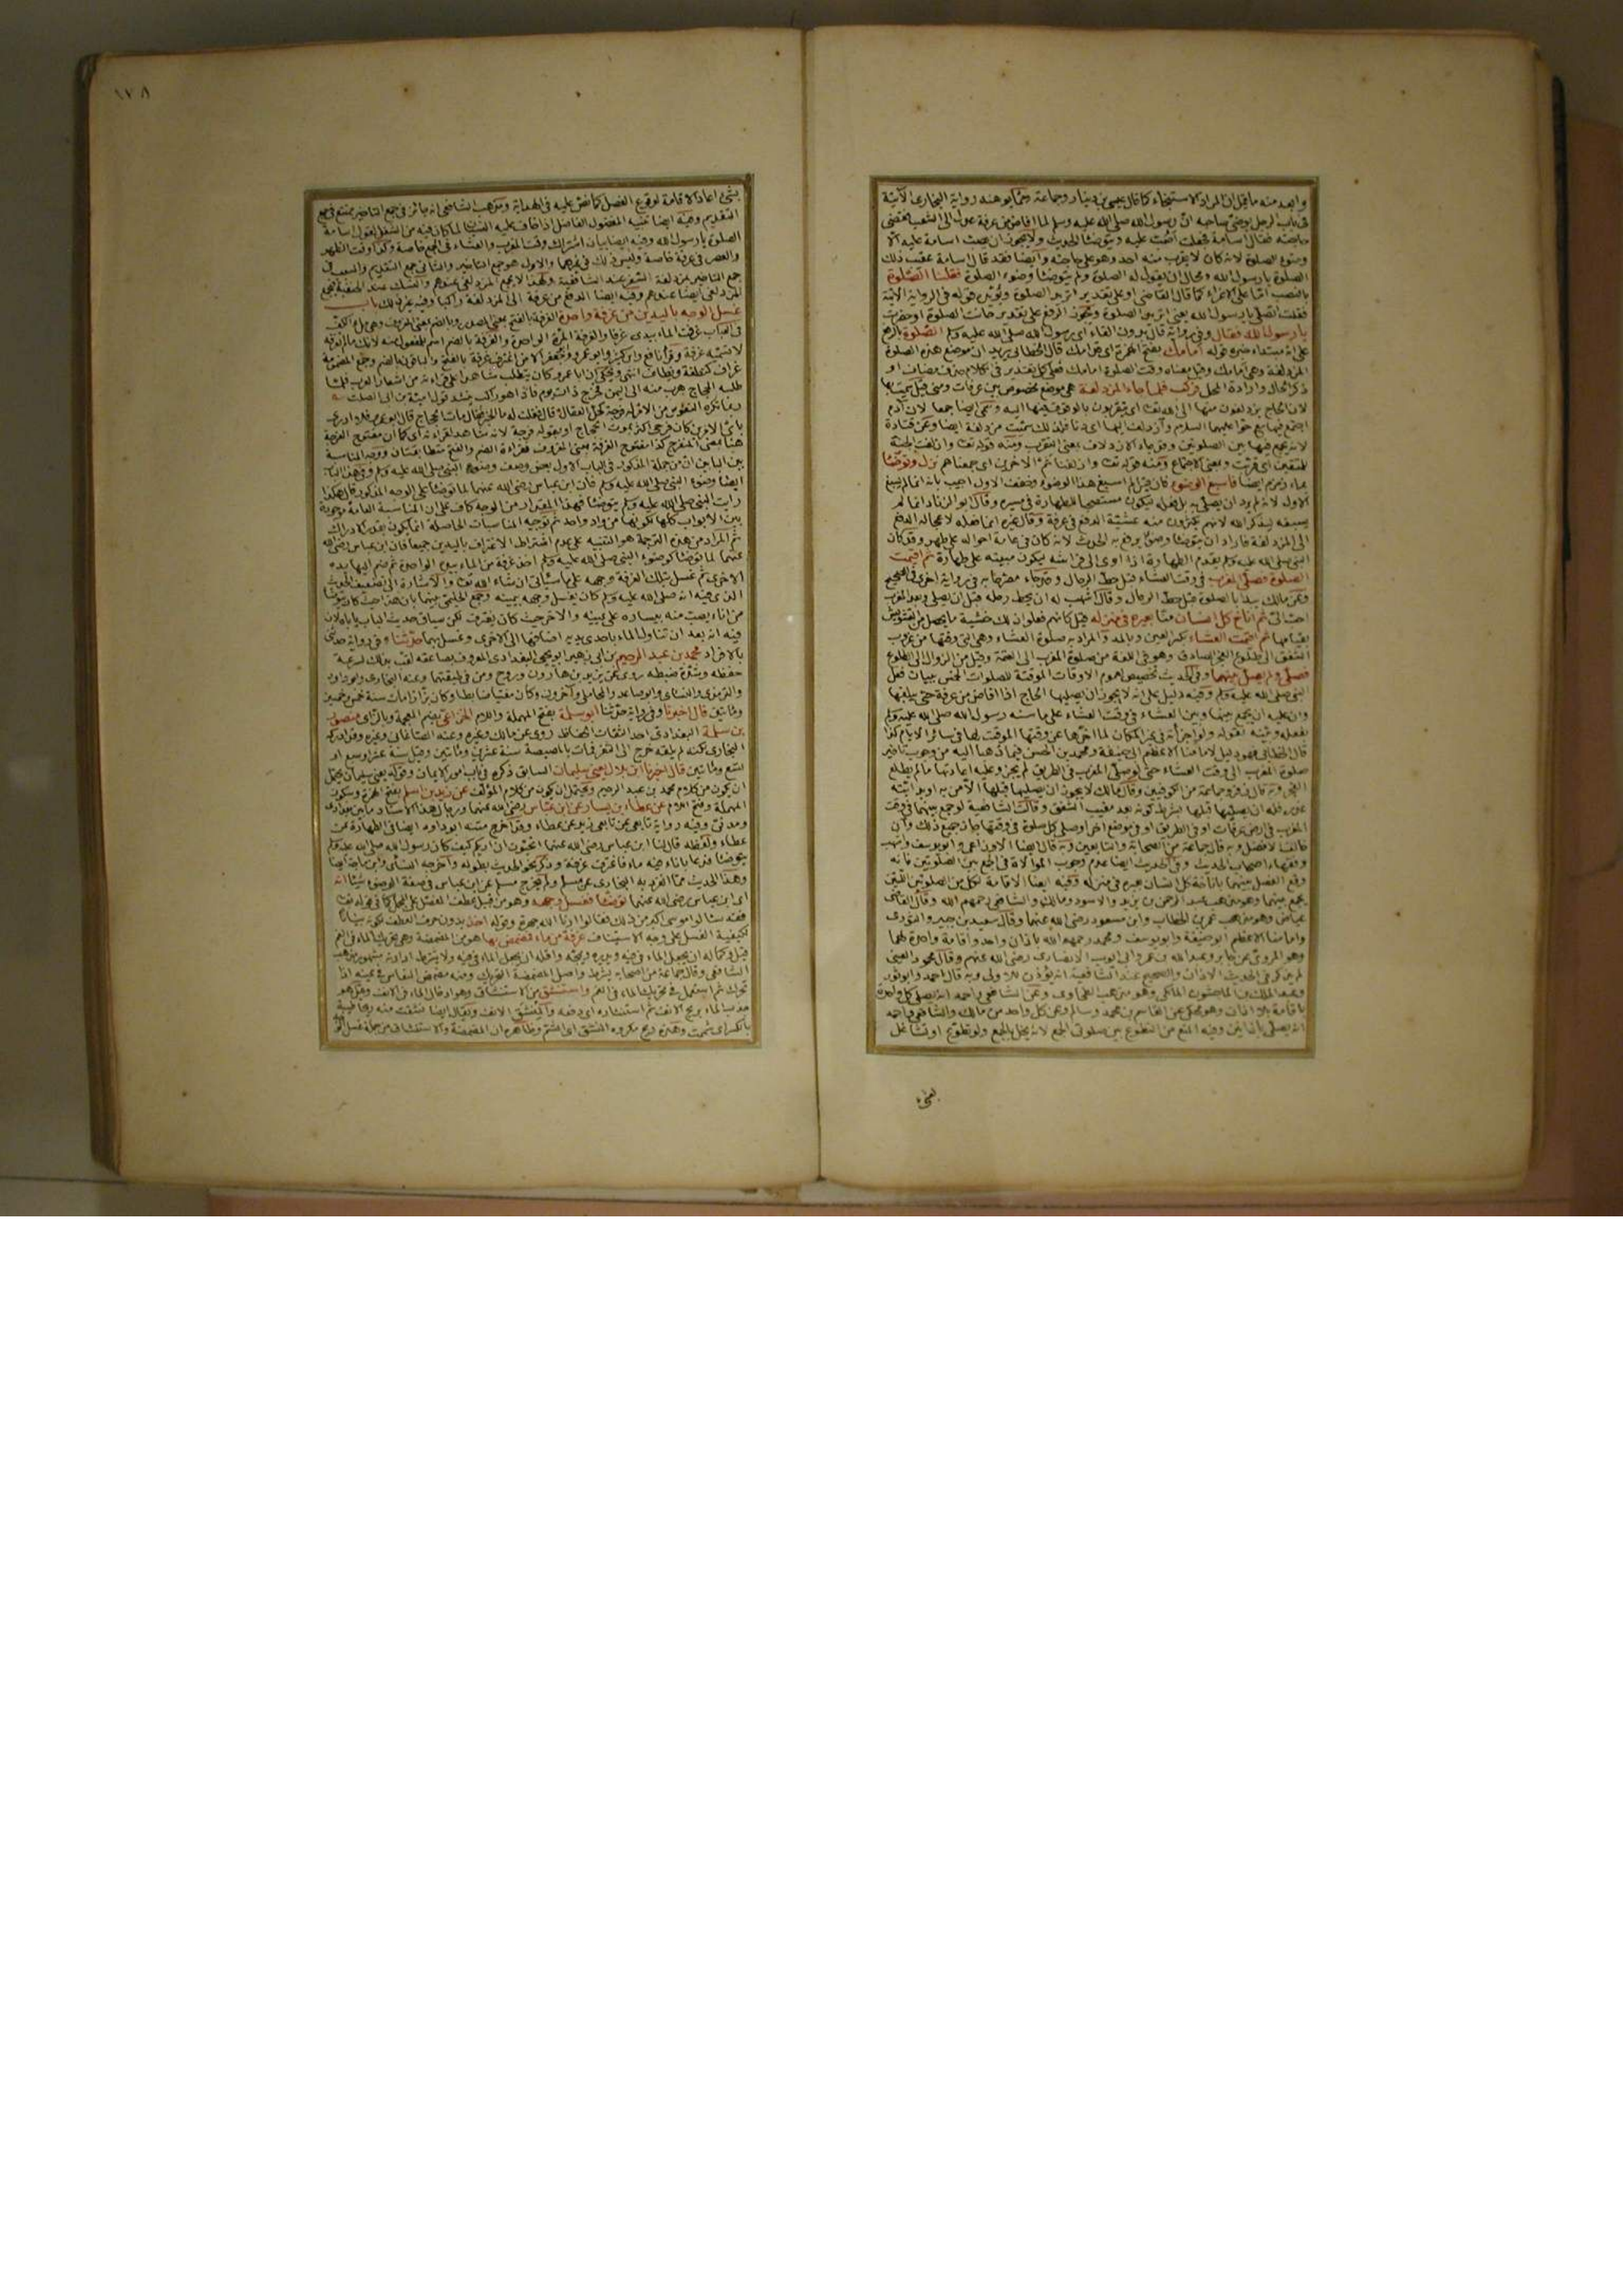 وابعد منه ما قيل ان المراد الاستنجاء كما قال عيسى بن دينار وجماعة ومما يوهنه رواية البخارى الآتية
فى باب الرجل يوضئ صاحبه ان رسول الله صلى الله عليه وسلم لما افاض من عرفة عدل الى الشعب فقضى
حاجته فقال اسامة فجعلت اصب عليه ويتوضأ الحديث ولا يجوز ان يصب اسامة عليه الا
وضوء الصلوة لانه كان لا يقرب منه احد وهو على حاجته وايضا فقد قال اسامة عقب ذلك
الصلوة يا رسول الله ومحال ان يقول له الصلوة ولم يتوضأ وضوء الصلوة فقلت الصلوة
بالنصب اما على الاغراء كما قال القاضى او على تقدير اتريد الصلوة ويؤيده قوله فى الرواية الآتية
فقلت اتصلى يا رسول الله يعنى اتريد الصلوة ويجوز الرفع على تقدير حانت الصلوة او حضرت
يا رسول الله فقال وفى رواية قال بدون الفاء اى رسول الله صلى الله عليه وسلم الصلوة بالرفع
على انه مبتداء خبره قوله امامك بفتح الهمزة اى قدامك قال الخطابى يريد ان موضع هذه الصلوة
المزدلفة وهى امامك وقيل معناه وقت الصلوة امامك فعلى كل تقدير فى الكلام حذف مضاف او
ذكر الحال وارادة المحل فركب فلما جاء المزدلفة هى موضع مخصوص بين عرفات ومنى قيل سميت بها
لان الحجاج يزدلفون منها الى الله تعالى اى يتقربون بالوقوف فيها اليه وتسمى ايضا جمعا لان آدم
اجتمع فيها مع حوا عليهما السلام وازدلف اليها اى دنا فلذلك سميت مزدلفة ايضا وعن قتادة
لانه يجمع فيها بين الصلوتين وقد جاء الازدلاف بمعنى التقرب ومنه قوله تعالى وازلفت الجنة
للمتقين اى قربت وبمعنى الاجتماع ومنه قوله تعالى وازلفنا ثم الآخرين اى جمعناهم نزل وتوضأ
بماء زمزم ايضا فاسبغ الوضوء فان قيل لم اسبغ هذا الوضوء وخفف الاول اجيب بانه انما لم يسبغ
الاول لانه لم يرد ان يصلى به بل فعله ليكون مستصحبا للطهارة فى مسيره وقال ابو الزناد انما لم
يسبغه ليذكر الله لانهم يكثرون منه عشية الدفع من عرفة وقال غيره انما فعله لاعجاله الدفع
الى المزدلفة فاراد ان يتوضأ وضوءا يرفع به الحدث لانه كان فى عامة احواله على طهر وقد كان
النبى صلى الله عليه وسلم يقدم الطهارة اذا اوى الى فراشه ليكون مبيته على طهارة ثم اقيمت
الصلوة فصلى المغرب فى وقت العشاء قبل حط الرحال وقد جاء مصرحا به فى رواية اخرى فى الصحيح
وعن مالك يبدأ بالصلوة قبل حط الرحال وقال اشهب له ان يحط رحله قبل ان يصلى وبعد المغرب
احب الى ثم اناخ كل انسان منا بعيره فى منزله قيل كانهم فعلوا ذلك خشية ما يحصل من التشويش
بقيامها ثم اقيمت العشاء بكسر العين وبالمد والمراد به صلوة العشاء وهى التى وقتها من غروب
الشفق الى طلوع الفجر الصادق وهو فى اللغة من صلوة المغرب الى العتمة وقيل من الزوال الى الطلوع
فصلى ولم يصل بينهما وفى الحديث تخصيص لعموم الاوقات الموقتة للصلوات الخمس ببيان فعل
النبى صلى الله عليه وسلم وفيه دليل على انه لا يجوز ان يصليها الحاج اذا افاض من عرفة حتى يبلغها
وان عليه ان يجمع بينها وبين العشاء فى وقت العشاء على ما سنه رسول الله صلى الله عليه وسلم
بفعله وبينه بقوله ولو اجزأته فى غير المكان لما اخرها عن وقتها الموقت لها فى سائر الايام كذا
قال الخطابى فهو دليل لامامنا الاعظم ابى حنيفة ومحمد بن الحسن فيما ذهبا اليه من وجوب تاخير
صلوة المغرب الى وقت العشاء حتى لو صلى المغرب فى الطريق لم يجز وعليه اعادتها ما لم يطلع
الفجر وبه قال زفر وجماعة من الكوفيين وقال مالك لا يجوز ان يصليها قبلها الا من به او بدابته
عذر فله ان يصليها قبلها بشرط كونه بعد مغيب الشفق وقالت الشافعية لو جمع بينهما فى وقت
المغرب فى ارض عرفات او فى الطريق او فى موضع آخر او صلى كل صلوة فى وقتها جاز جميع ذلك وان
خالف الافضل وبه قال جماعة من الصحابة والتابعين وبه قال ايضا الاوزاعى وابو يوسف واشهب
وفقهاء اصحاب الحديث وفى الحديث ايضا عدم وجوب الموالاة فى الجمع بين الصلوتين فانه
وقع الفصل بينهما باناخة كل انسان بعيره فى منزله وفيه ايضا الاقامة لكل من الصلوتين اللتين
يجمع بينهما وهو مذهب عبد الرحمن بن يزيد والاسود ومالك والشافعى رحمهم الله وقال القاضى
عياض وهو مذهب عمر بن الخطاب وابن مسعود رضى الله عنهما وقال سعيد بن جبير والثورى
وامامنا الاعظم ابو حنيفة وابو يوسف ومحمد رحمهم الله باذان واحد واقامة واحدة لهما
وهو المروى عن جابر وعبد الله بن عمر وابى ايوب الانصارى رضى الله عنهم وقال محمود العينى
لم يذكر فى الحديث الاذان والصحيح عند الشافعية انه يؤذن للاولى وبه قال احمد وابو ثور
وعبد الملك بن الماجشون المالكى وهو مذهب الطحاوى وعن الشافعى واحمد انه يصلى كل واحدة
باقامة بلا اذان وهو محكى عن القاسم بن محمد وسالم وعن كل واحد من مالك والشافعى واحمد
انه يصلى باذانين وفيه المنع من التطوع بين صلوتى الجمع لانه يخل بالجمع ولو تطوع او تشاغل
بشئ
١٧٨
بشئ اعاد الاقامة لوقوع الفصل كما نص عليه فى الهداية ومذهب الشافعى انه جائز فى جمع التاخير ممتنع فى جمع
التقديم وفيه ايضا تنبيه المفضول الفاضل اذا خاف عليه النسيان لما كان فيه من الشغل لقول اسامة
الصلوة يا رسول الله وفيه ايضا بيان اشتراك وقت المغرب والعشاء فى الجمع خاصة وكذا وقت الظهر
والعصر فى عرفة خاصة وليس ذلك فى غيرهما والاول هو جمع التاخير والثانى جمع التقديم والسبب فى
جمع التاخير بمزدلفة السفر عند الشافعية ولهذا لا يجمع المزدلفى عندهم والنسك عند الحنفية فيجمع
المزدلفى ايضا عندهم وفيه ايضا الدفع من عرفة الى المزدلفة راكبا وفيه غير ذلك باب
غسل الوجه باليدين من غرفة واحدة الغرفة بالفتح بمعنى المصدر وبالضم بمعنى المغروف وهى ملء الكف
فى العباب غرفت الماء بيدى غرفا والغرفة المرة الواحدة والغرفة بالضم اسم للمفعول منه لانك ما لم تغرفه
لا تسميه غرفة وقرأ نافع وابن كثير وابو عمرو وابو جعفر الا من اغترف غرفة بالفتح والباقون بالضم وجمع المضمومة
غراف كنطفة ونطاف انتهى ويحكى ان ابا عمرو كان يتطلب شاهدا على قراءته من اشعار العرب فلما
طلبه الحجاج هرب منه الى اليمن فخرج ذات يوم فاذا هو راكب ينشد قول امية بن ابى الصلت
ربما تكره النفوس من الامر له فرجة كحل العقال قال فقلت له ما الخبر فقال مات الحجاج قال ابو عمرو فلا ادرى
باى الامرين كان فرحى اكثر بموت الحجاج او بقوله فرجة لانه شاهد لقراءته اى كما ان مفتوح الفرجة
هنا بمعنى المنفرج كذا مفتوح الغرفة بمعنى المغروف فقراءة الضم والفتح متطابقتان ووجه المناسبة
بين البابين ان من جملة المذكور فى الباب الاول بعض وصف وضوء النبى صلى الله عليه وسلم وفى هذا الباب
ايضا وضوء النبى صلى الله عليه وسلم فان ابن عباس رضى الله عنهما لما توضأ على الوجه المذكور قال هكذا
رايت النبى صلى الله عليه وسلم يتوضأ فهذا المقدار من الوجه كاف على ان المناسبة العامة موجودة
بين الابواب كلها لكونها من واد واحد ثم توجيه المناسبات الخاصة انما يكون بقدر الادراك
ثم المراد من هذه الترجمة هو التنبيه على عدم اشتراط الاغتراف باليدين جميعا فان ابن عباس رضى الله
عنهما لما توضأ كوضوء النبى صلى الله عليه وسلم اخذ غرفة من الماء بيده الواحدة ثم ضم اليها يده
الاخرى ثم غسل بتلك الغرفة وجهه على ما سيأتى ان شاء الله تعالى والاشارة الى تضعيف الحديث
الذى فيه انه صلى الله عليه وسلم كان يغسل وجهه بيمينه وجمع الحليمى بينهما بان هذا حيث كان يتوضأ
من اناء يصب منه بيساره على يمينه والآخر حيث كان يغترف لكن سياق حديث الباب ياباه لان
فيه انه بعد ان تناول الماء باحدى يديه اضافها الى الاخرى وغسل بهما حدثنا وفى رواية حدثنى
بالافراد محمد بن عبد الرحيم بن ابى زهير ابو يحيى البغدادى المعروف بصاعقة لقب بذلك لسرعة
حفظه وشدة ضبطه روى عن يزيد بن هارون وروح ومن فى طبقتهما وعنه البخارى وابو داود
والترمذى والنسائى وابن صاعد والمحاملى وآخرون وكان متقنا ضابطا وكان بزازا مات سنة خمس وخمسين
ومائتين قال اخبرنا وفى رواية حدثنا ابو سلمة بفتح المهملة واللام الخزاعى بضم المعجمة وبالزاى منصور
بن سلمة البغدادى احد الثقات الحفاظ روى عن مالك وغيره وعنه الصاغانى وغيره وقد ادركه
البخارى لكنه لم يلقه خرج الى الثغر فمات بالمصيصة سنة عشرين ومائتين وقيل سنة عشر او سبع او
تسع ومائتين قال اخبرنا ابن بلال يعنى سليمان السابق ذكره فى باب امور الايمان وقوله يعنى سليمان يحتمل
ان يكون من كلام محمد بن عبد الرحيم ويحتمل ان يكون من كلام المؤلف عن زيد بن اسلم بفتح الهمزة وسكون
المهملة وفتح اللام عن عطاء بن يسار عن ابن عباس رضى الله عنهما ورجال هذا الاسناد ما بين بغدادى
ومدنى وفيه رواية تابعى عن تابعى زيد عن عطاء وقد اخرج متنه ابو داود ايضا فى الطهارة عن
عطاء ولفظه قال لنا ابن عباس رضى الله عنهما اتحبون ان اريكم كيف كان رسول الله صلى الله عليه وسلم
يتوضأ فدعا باناء فيه ماء فاغترف غرفة وذكر نحو الحديث بطوله واخرجه النسائى وابن ماجة ايضا
وهذا الحديث مما انفرد به البخارى عن مسلم ولم يخرج مسلم عن ابن عباس فى صفة الوضوء شيئا انه
اى ابن عباس رضى الله عنهما توضأ فغسل وجهه وهو من قبيل عطف المفصل على المجمل كما فى قوله تعالى
فقد سألوا موسى اكبر من ذلك فقالوا ارنا الله جهرة وقوله اخذ بدون حرف العطف لكونه بيانا
لكيفية الغسل على وجه الاستيناف غرفة من ماء فمضمض بها هو من المضمضة وهى تحريك الماء فى الفم
قيل وكماله ان يجعل الماء فى فيه ويديره ويمجه واقله ان يجعل الماء فى فيه ولا يشترط ادارته بمشهور مذهب
الشافعى وقال جماعة من اصحابه يشترط واصل المضمضة التحريك ومنه مضمض النعاس فى عينيه اذا
تحرك ثم استعمل فى تحريك الماء فى الفم واستنشق من الاستنشاق وهو ادخال الماء فى الانف وقيل هو
جذب الماء بريح الانف ثم استنثاره اى دفعه والمنشق الانف ويقال ايضا نشقت منه ريحا طيبة
بالكسر اى شممت وهذه ريح مكروه النشق اى الشم وظاهره ان المضمضة والاستنشاق من جملة غسل الوجه